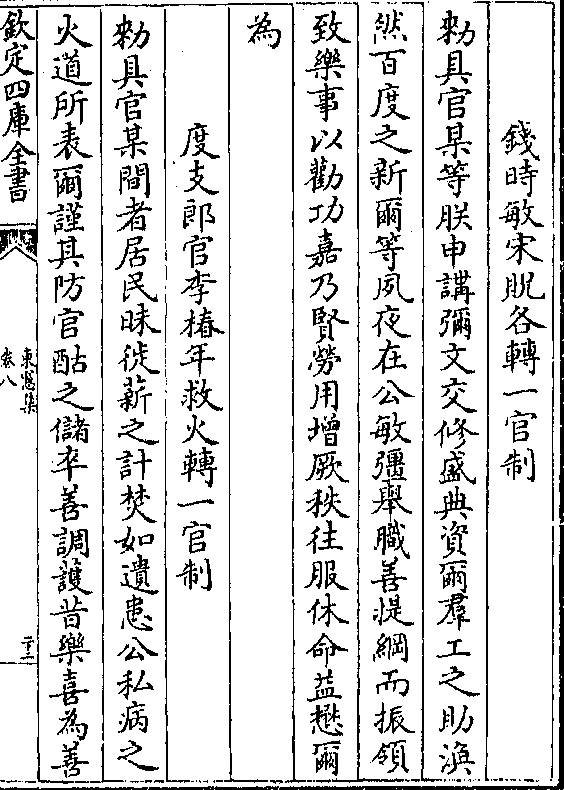 錢時敏宋貺各轉一官制
勑具官某等朕申講彌文交修盛典資爾羣工之助渙
然百度之新爾等夙夜在公敏彊舉職善提綱而振領
致樂事以勸功嘉乃賢勞用增厥秩往服休命益懋爾
為
度支郎官李椿年救火轉一官制
勑具官某間者居民昧徙薪之計焚如遺患公私病之
火道所表爾謹其防官酤之儲卒善調䕶昔樂喜為善
欽定四庫全書
東窻集
卷八
二十二